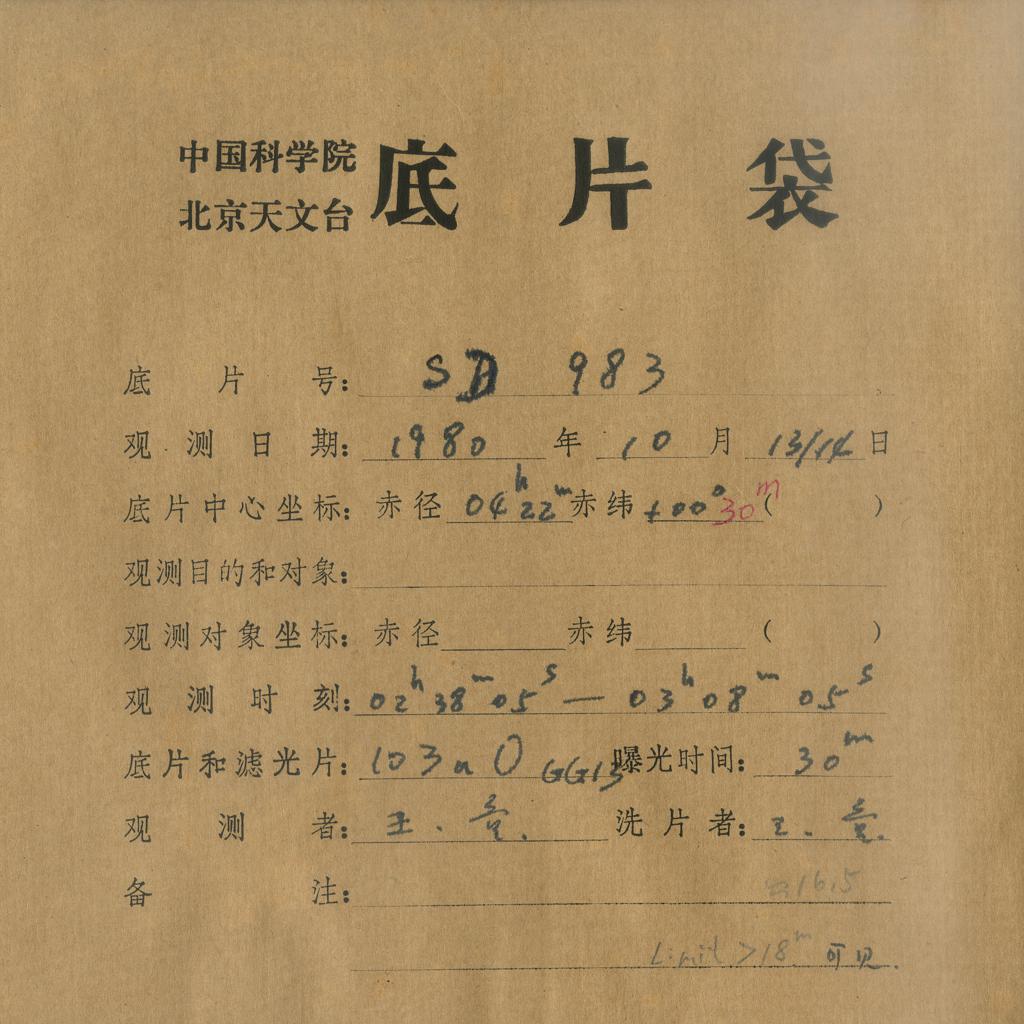 中国科学院
北京天文台
底片袋
底片号: SD 983
观测日期: 1980 年 10 月 13/14 日
底片中心坐标: 赤径 04h 22m 赤纬 +00° 30m ( )
观测目的和对象:
观测对象坐标: 赤径 赤纬 ( )
观测时刻: 02h 38m 05s — 03h 08m 05s
底片和滤光片: 103aO GG13 曝光时间: 30m
观测者: 王. 洗片者: 王.
备注: 16.5
Limit >18m 可见.